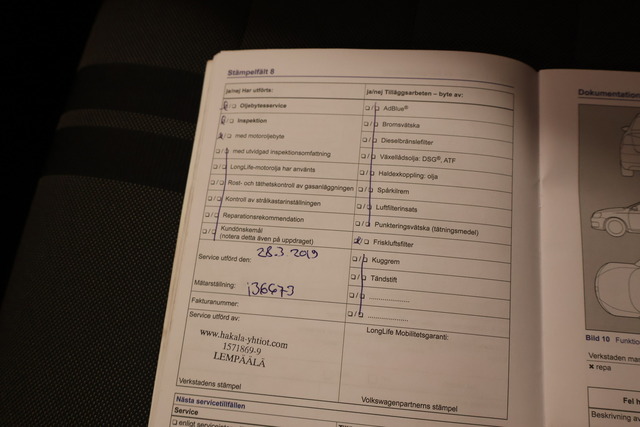 Stämpelfält 8
ja/nej Har utförts:
Oljebytesservice
Inspektion
med motoroljebyte
med utvidgad inspektionsomfattning
LongLife-motorolja har använts
Rost- och täthetskontroll av gasanläggningen
Kontroll av strålkastarinställningen
Reparationsrekommendation
Kundönskemål
(notera detta även på uppdraget)
Service utförd den: 28.3.2019
Mätarställning: 136673
Fakturanummer:
Service utförd av:
www.hakala-yhtiot.com
1571869-9
LEMPÄÄLÄ
Verkstadens stämpel
ja/nej Tilläggsarbeten – byte av:
AdBlue®
Bromsvätska
Dieselbränslefilter
Växellådsolja: DSG®, ATF
Haldexkoppling: olja
Spårkilrem
Luftfilterinsats
Punkteringsvätska (tätningsmedel)
Friskluftsfilter
Kuggrem
Tändstift
....................
....................
LongLife Mobilitetsgaranti:
Volkswagenpartnerns stämpel
Nästa servicetillfällen
Service
Dokumentation
Bild 10 Funktio
Verkstaden mar
✖ repa
Fel h
Beskrivning av